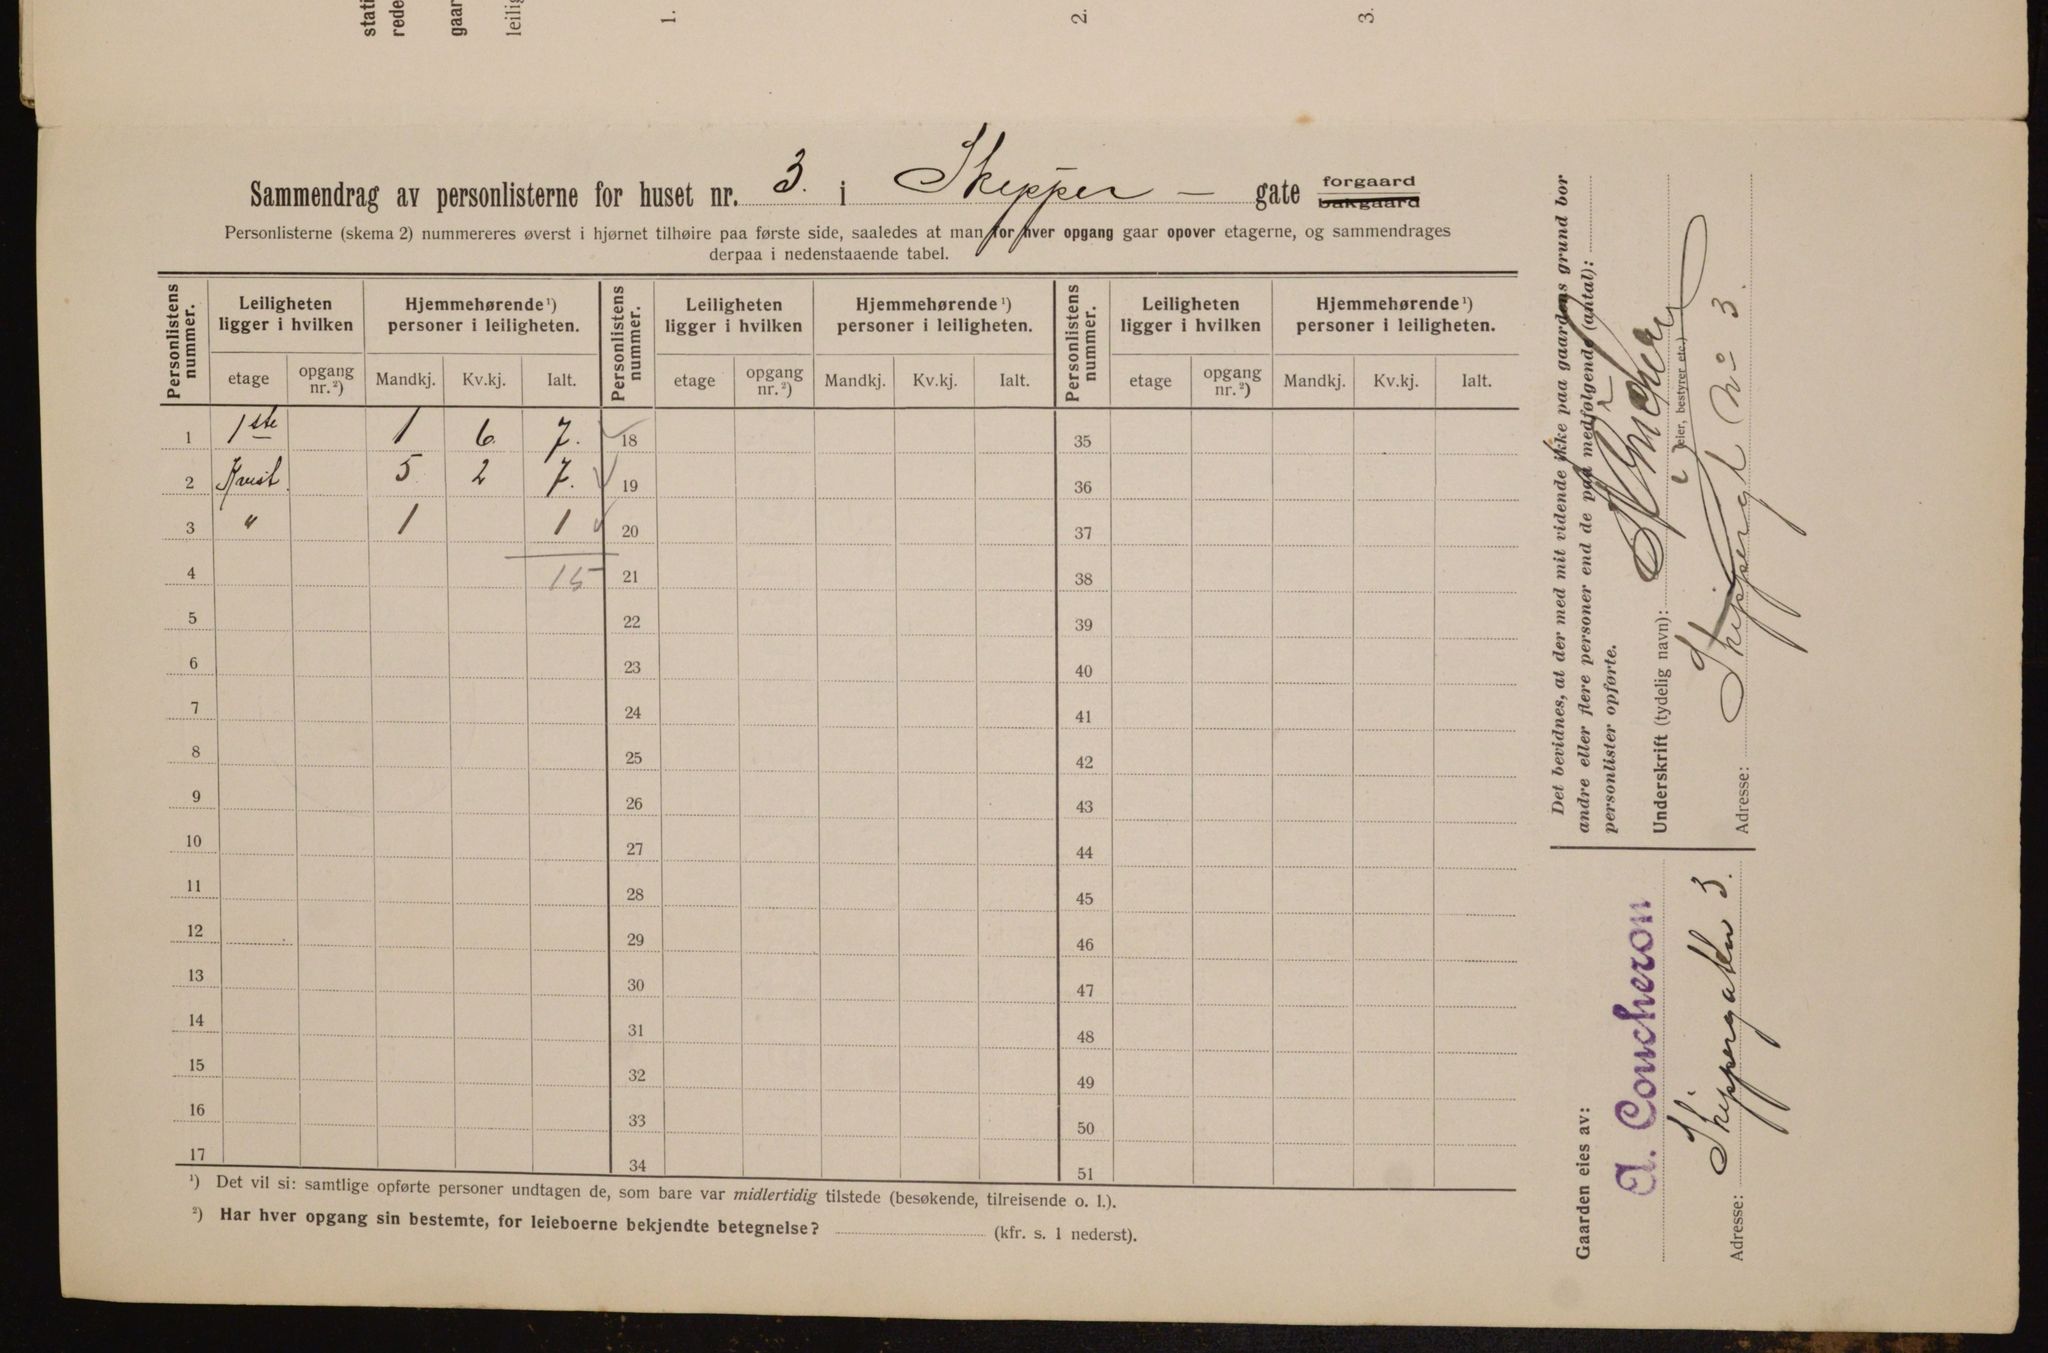 stati
rede
gaar
leilig
1.
2.
3.
Sammendrag av personlisterne for huset nr. 3. i Skipper - gate forgaard
bakgaard
Personlisterne (skema 2) nummereres øverst i hjørnet tilhøire paa første side, saaledes at man for hver opgang gaar opover etagerne, og sammendrages
derpaa i nedenstaaende tabel.
Personlistens nummer. Leiligheten ligger i hvilken Hjemmehørende ¹) personer i leiligheten. Personlistens nummer. Leiligheten ligger i hvilken Hjemmehørende ¹) personer i leiligheten. Personlistens nummer. Leiligheten ligger i hvilken Hjemmehørende ¹) personer i leiligheten.
etage opgang nr. ²) Mandkj. Kv.kj. Ialt. etage opgang nr. ²) Mandkj. Kv.kj. Ialt. etage opgang nr. ²) Mandkj. Kv.kj. Ialt.
1 1ste 1 6 7. 18 35
2 Kvist 5 2 7. 19 36
3 " 1 1 20 37
4 15 21 38
5 22 39
6 23 40
7 24 41
8 25 42
9 26 43
10 27 44
11 28 45
12 29 46
13 30 47
14 31 48
15 32 49
16 33 50
17 34 51
¹) Det vil si: samtlige opførte personer undtagen de, som bare var midlertidig tilstede (besøkende, tilreisende o. l.).
²) Har hver opgang sin bestemte, for leieboerne bekjendte betegnelse? (kfr. s. 1 nederst).
Det bevidnes, at der med mit vidende ikke paa gaardens grund bor
andre eller flere personer end de paa medfølgende (antal):
personlister opførte.
Underskrift (tydelig navn):
(eier, bestyrer etc.)
Adresse: Skippergt No 3.
Gaarden eies av:
A. Concheron
Adresse: Skippergaten 3.